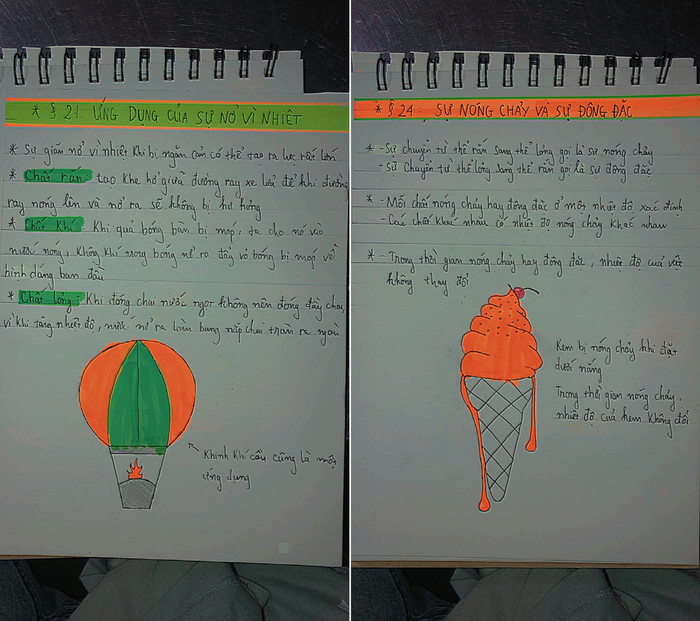 * § 21: ỨNG DỤNG CỦA SỰ NỞ VÌ NHIỆT
* Sự giãn nở vì nhiệt khi bị ngăn cản có thể tạo ra lực rất lớn
* Chất rắn: tạo khe hở giữa đường ray xe lửa để khi đường
ray nóng lên và nở ra sẽ không bị hư hỏng
* Chất khí: Khi quả bóng bàn bị móp, ta cho nó vào
nước nóng, không khí trong bóng nở ra đẩy vỏ bóng bị móp về
hình dáng ban đầu
* Chất lỏng: Khi đóng chai nước ngọt không nên đóng đầy chai,
vì khi tăng nhiệt độ, nước nở ra làm bung nắp chai tràn ra ngoài
Khinh khí cầu cũng là một
ứng dụng
* § 24: SỰ NÓNG CHẢY VÀ SỰ ĐÔNG ĐẶC
* - Sự chuyển từ thể rắn sang thể lỏng gọi là sự nóng chảy
- Sự chuyển từ thể lỏng sang thể rắn gọi là sự đông đặc
* - Mỗi chất nóng chảy hay đông đặc ở một nhiệt độ xác định
- Các chất khác nhau có nhiệt độ nóng chảy khác nhau
* - Trong thời gian nóng chảy hay đông đặc, nhiệt độ của vật
không thay đổi
Kem bị nóng chảy khi đặt
dưới nắng
Trong thời gian nóng chảy,
nhiệt độ của kem không đổi